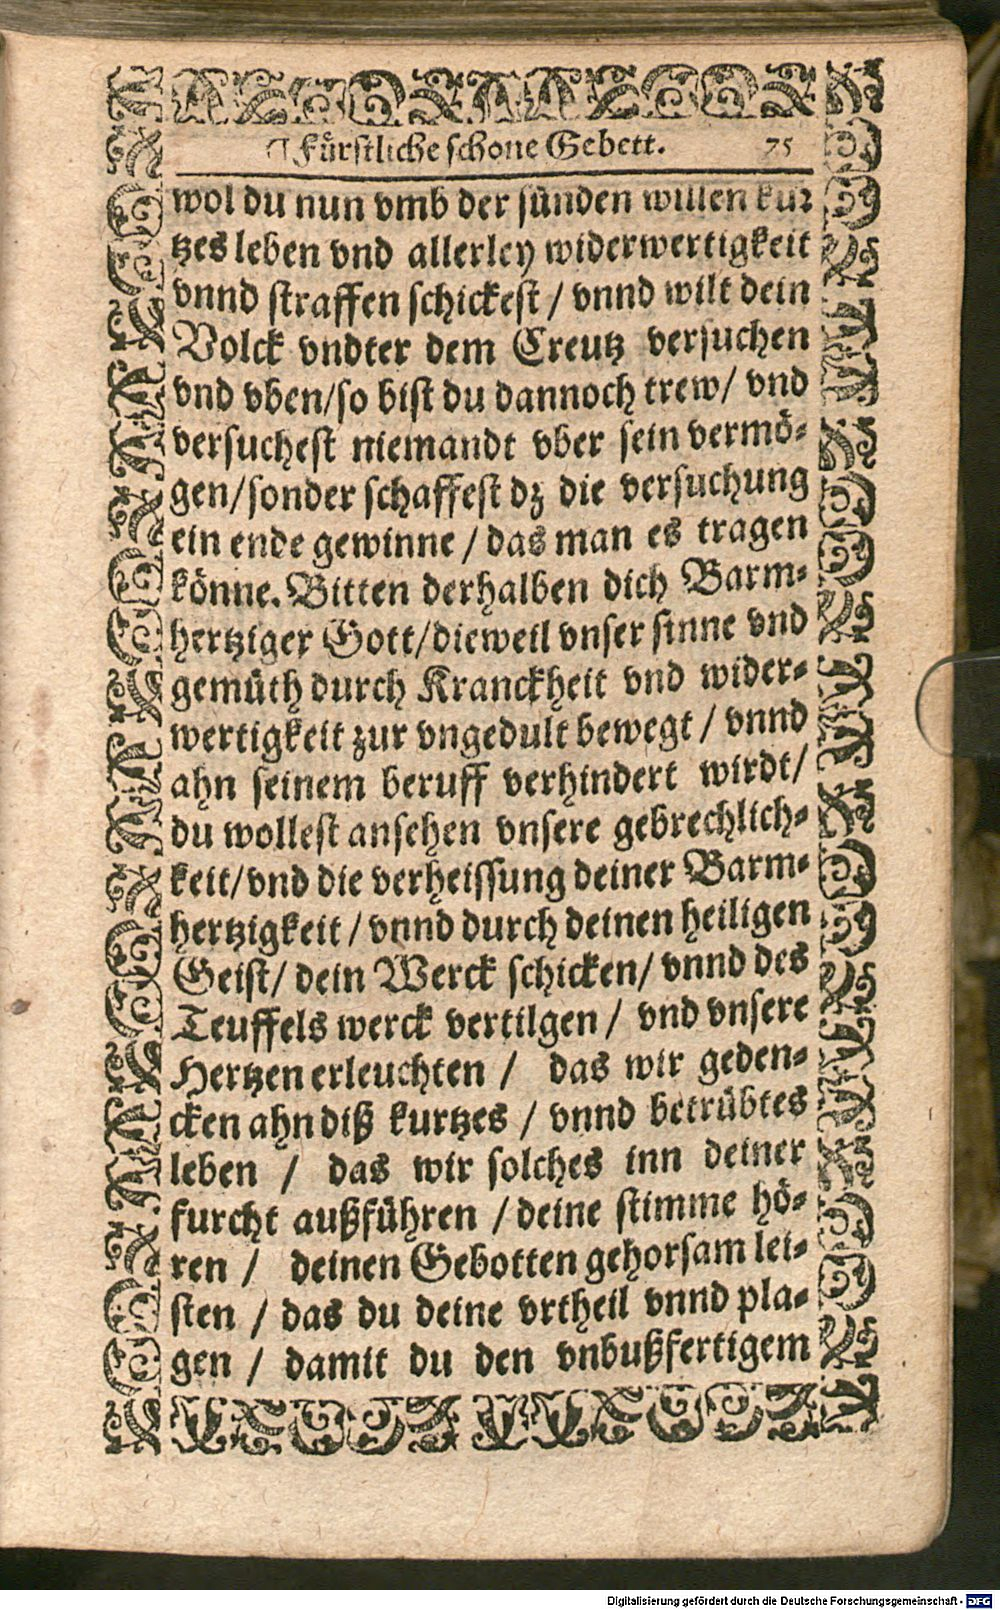 Fürstliche schone Gebett. 75
wol du nun vmb der sünden willen kur
tzes leben vnd allerley widerwertigkeit
vnnd straffen schickest / vnnd wilt dein
Volck vndter dem Creutz versuchen
vnd vben/so bist du dannoch trew/ vnd
versuchest niemandt vber sein vermö-
gen/sonder schaffest dz die versuchung
ein ende gewinne / das man es tragen
könne. Bitten derhalben dich Barm-
hertziger Gott/dieweil vnser sinne vnd
gemüth durch Kranckheit vnd wider-
wertigkeit zur vngedult bewegt / vnnd
ahn seinem beruff verhindert wirdt/
du wollest ansehen vnsere gebrechlich-
keit/vnd die verheissung deiner Barm-
hertzigkeit / vnnd durch deinen heiligen
Geist/ dein Werck schicken/ vnnd des
Teuffels werck vertilgen / vnd vnsere
Hertzen erleuchten / das wir geden-
cken ahn diß kurtzes / vnnd betrübtes
leben / das wir solches inn deiner
furcht außführen / deine stimme hö-
ren / deinen Gebotten gehorsam lei-
sten / das du deine vrtheil vnnd pla-
gen / damit du den vnbußfertigem
Digitalisierung gefördert durch die Deutsche Forschungsgemeinschaft - DFG